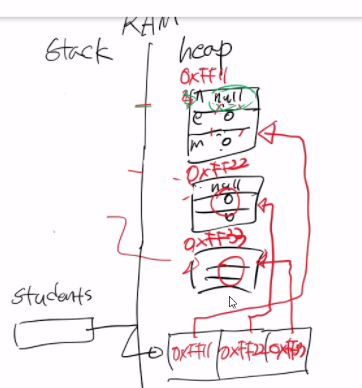 RAM
Stack heap
0xFF11
n null
e 0
m 0
0xFF22
null
0
0
0xFF33
Students
0xFF11 0xFF22 0xFF33